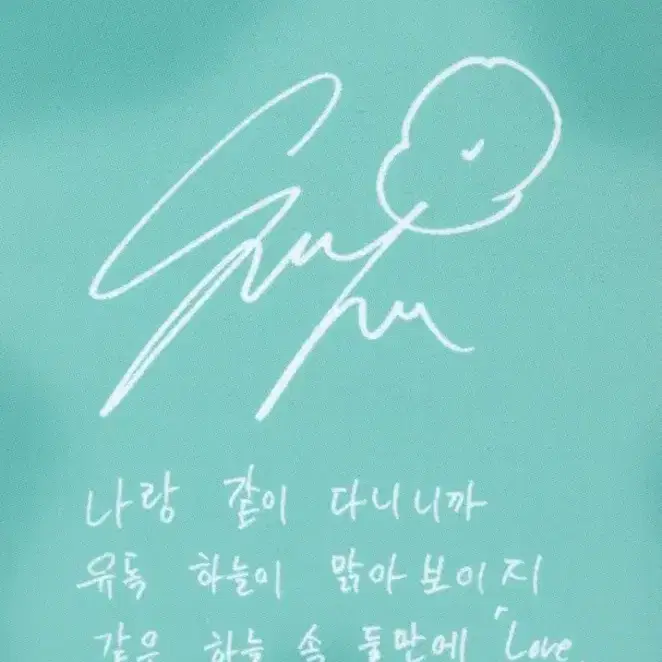 나랑 같이 다니니까
유독 하늘이 맑아보이지
같은 하늘 속 둘만에 「Love